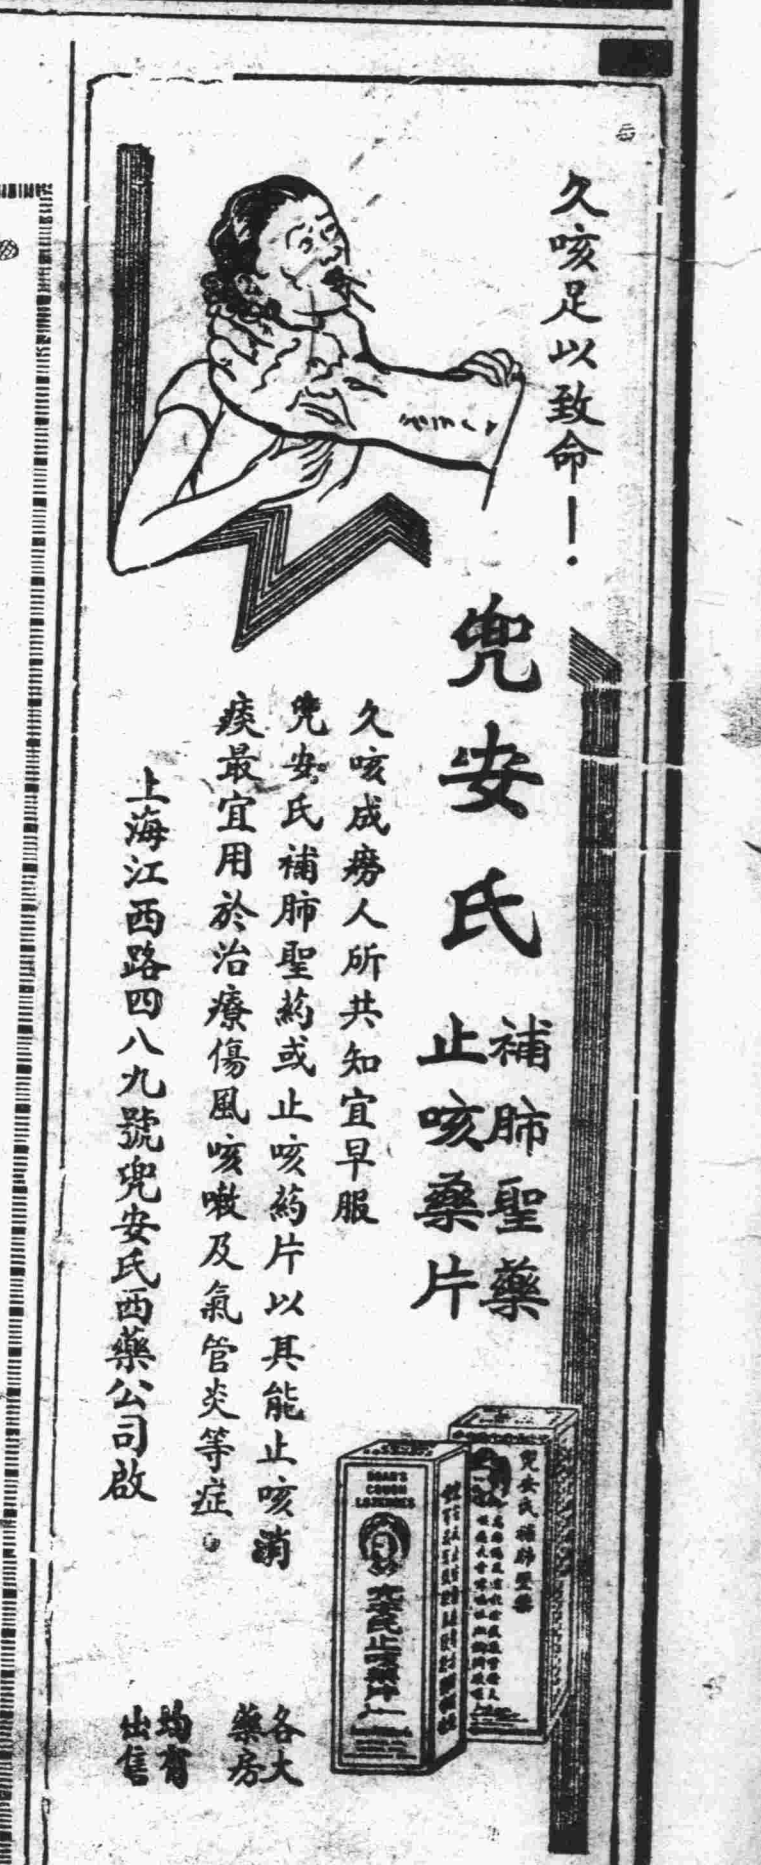 久咳足以致命！
兜安氏
補肺聖藥
止咳藥片
久咳成癆人所共知宜早服
兜安氏補肺聖葯或止咳葯片以其能止咳消
痰最宜用於治療傷風咳嗽及氣管炎等症。
上海江西路四八九號兜安氏西藥公司啟
各大
藥房
均有
出售
兜安氏補肺聖藥
DOAN'S
COUGH
LOZENGES
兜安氏止咳藥片